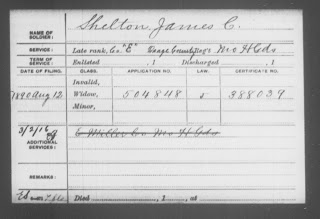 NAME OF SOLDIER: Shelton, James C.
SERVICE: Late rank, Co. "E" Osage County Reg't Mo H Gds
TERM OF SERVICE: Enlisted , 1 Discharged , 1
DATE OF FILING. CLASS. APPLICATION NO. LAW. CERTIFICATE NO.
Invalid,
1890 Aug 12 Widow, 504848 5 388039
Minor,
3/3/16
ADDITIONAL SERVICES: E Miller Co Mo H Gds
REMARKS:
Died , 1 , at